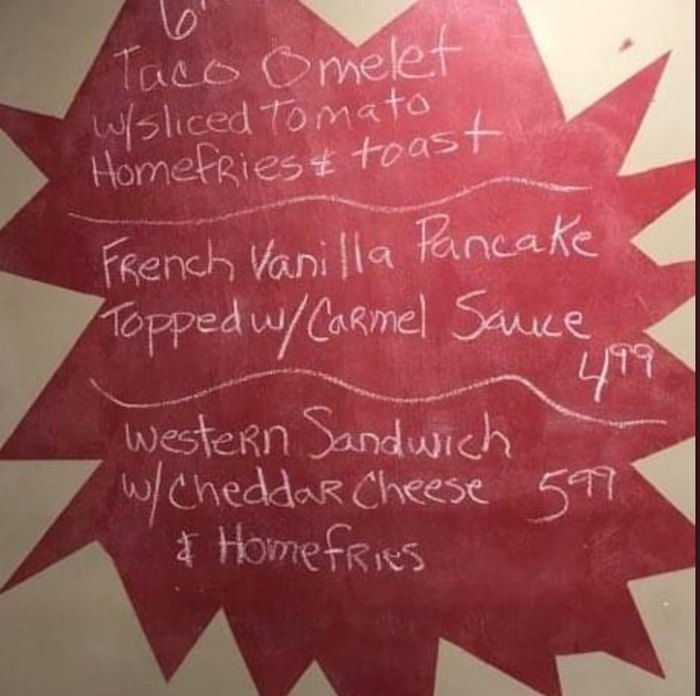 Taco Omelet
w/sliced Tomato
Homefries & toast
French Vanilla Pancake
Topped w/Carmel Sauce
4.99
Western Sandwich
w/Cheddar Cheese 5.99
& Homefries